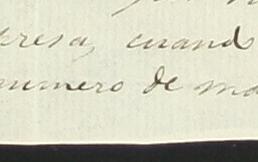 presa, cuand
numero de ma